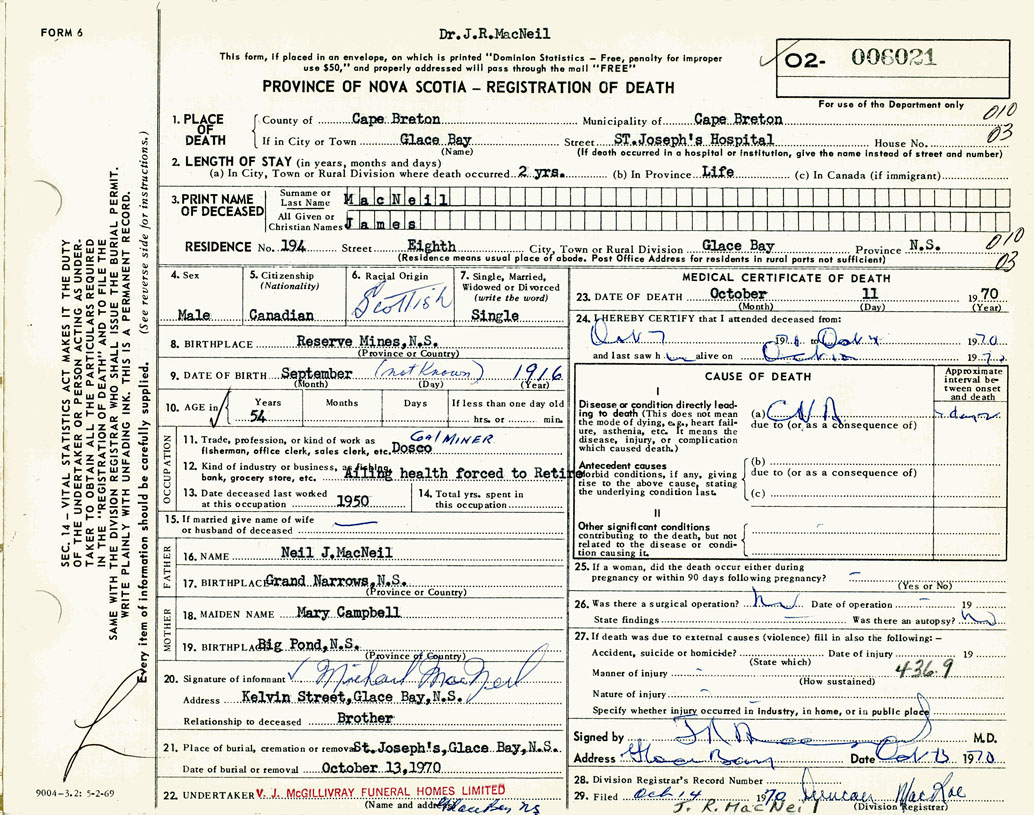 FORM 6
Dr.J.R.MacNeil
This form, if placed in an envelope, on which is printed "Dominion Statistics – Free, penalty for improper
use $50," and properly addressed will pass through the mail "FREE"
PROVINCE OF NOVA SCOTIA – REGISTRATION OF DEATH
O2- 006021
For use of the Department only
1. PLACE OF DEATH
County of Cape Breton Municipality of Cape Breton 010
If in City or Town Glace Bay Street ST.Joseph's Hospital House No. 03
(Name) (If death occurred in a hospital or institution, give the name instead of street and number)
2. LENGTH OF STAY (in years, months and days)
(a) In City, Town or Rural Division where death occurred 2 yrs. (b) In Province Life (c) In Canada (if immigrant)
3. PRINT NAME OF DECEASED
Surname or Last Name MacNeil
All Given or Christian Names James
RESIDENCE No. 194 Street Eighth City, Town or Rural Division Glace Bay Province N.S. 010
(Residence means usual place of abode. Post Office Address for residents in rural parts not sufficient) 03
4. Sex
Male
5. Citizenship
(Nationality)
Canadian
6. Racial Origin
Scottish
7. Single, Married,
Widowed or Divorced
(write the word)
Single
8. BIRTHPLACE Reserve Mines,N.S.
(Province or Country)
9. DATE OF BIRTH September (not known) 1916
(Month) (Day) (Year)
10. AGE in Years Months Days If less than one day old
54 hrs. or min.
OCCUPATION
11. Trade, profession, or kind of work as Coal MINER
fisherman, office clerk, sales clerk, etc. Dosco
12. Kind of industry or business, as fishing,
bank, grocery store, etc. Ailing health forced to Retire
13. Date deceased last worked
at this occupation 1950
14. Total yrs. spent in
this occupation
15. If married give name of wife
or husband of deceased —
FATHER
16. NAME Neil J.MacNeil
17. BIRTHPLACE Grand Narrows,N.S.
(Province or Country)
MOTHER
18. MAIDEN NAME Mary Campbell
19. BIRTHPLACE Big Pond,N.S.
(Province or Country)
20. Signature of informant Michael MacNeil
Address Kelvin Street,Glace Bay,N.S.
Relationship to deceased Brother
21. Place of burial, cremation or removal St.Joseph's,Glace Bay,N.S.
Date of burial or removal October 13,1970
22. UNDERTAKER V. J. McGILLIVRAY FUNERAL HOMES LIMITED
(Name and address) Glace Bay NS
MEDICAL CERTIFICATE OF DEATH
23. DATE OF DEATH October 11 1970
(Month) (Day) (Year)
24. I HEREBY CERTIFY that I attended deceased from:
Oct 7 19 to Oct 1970
and last saw him alive on Oct 10 19
CAUSE OF DEATH
Approximate
interval be-
tween onset
and death
I
Disease or condition directly lead-
ing to death (This does not mean
the mode of dying, e.g., heart fail-
ure, asthenia, etc. It means the
disease, injury, or complication
which caused death.)
(a) CVA days
due to (or as a consequence of)
Antecedent causes
Morbid conditions, if any, giving
rise to the above cause, stating
the underlying condition last.
(b)
due to (or as a consequence of)
(c)
II
Other significant conditions
contributing to the death, but not
related to the disease or condi-
tion causing it.
25. If a woman, did the death occur either during
pregnancy or within 90 days following pregnancy? –
(Yes or No)
26. Was there a surgical operation? No Date of operation – 19
State findings – Was there an autopsy? No
27. If death was due to external causes (violence) fill in also the following: –
Accident, suicide or homicide? Date of injury 19
(State which)
Manner of injury – 4369
(How sustained)
Nature of injury –
Specify whether injury occurred in industry, in home, or in public place
Signed by M.D.
Address Glace Bay Date Oct 13 1970
28. Division Registrar's Record Number
29. Filed Oct 14 1970 Duncan MacRae
J. R. MacNeil (Division Registrar)
SEC. 14 – VITAL STATISTICS ACT MAKES IT THE DUTY
OF THE UNDERTAKER OR PERSON ACTING AS UNDER-
TAKER TO OBTAIN ALL THE PARTICULARS REQUIRED
IN THE "REGISTRATION OF DEATH" AND TO FILE THE
SAME WITH THE DIVISION REGISTRAR WHO SHALL ISSUE THE BURIAL PERMIT.
WRITE PLAINLY WITH UNFADING INK. THIS IS A PERMANENT RECORD.
Every item of information should be carefully supplied. (See reverse side for instructions.)
9004-3.2: 5-2-69